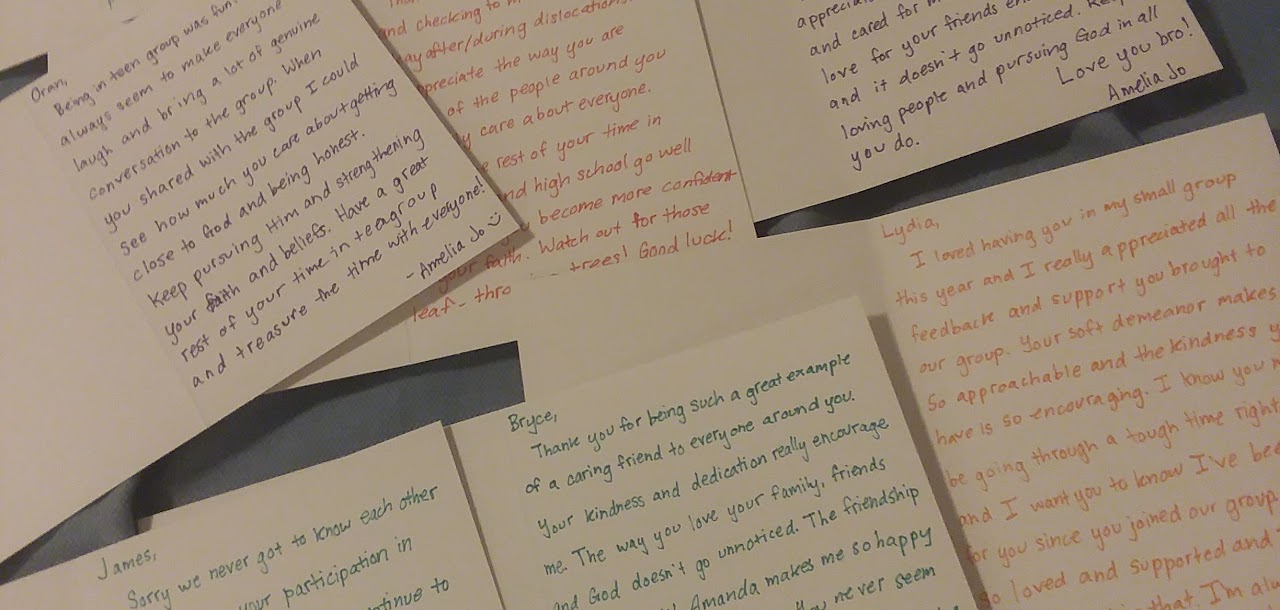 Oran,
Being in teen group was fun.
always seem to make everyone
laugh and bring a lot of genuine
conversation to the group. When
you shared with the group I could
see how much you care about getting
close to God and being honest.
Keep pursuing Him and strengthening
your faith and beliefs. Have a great
rest of your time in teagroup
and treasure the time with everyone!
- Amelia Jo
and checking to
after/during dislocations
the way you are
of the people around you
care about everyone.
rest of your time in
and high school go well
become more confident
your faith. Watch out for those
leaf- thro trees! Good luck!
and cared for
love for your friends
and it doesn't go unnoticed.
loving people and pursuing God in all
you do.
Love you bro!
Amelia Jo
Lydia,
I loved having you in my small group
this year and I really appreciated all the
feedback and support you brought to
our group. Your soft demeanor makes
so approachable and the kindness
have is so encouraging. I know you
be going through a tough time right
and I want you to know I've
for you since you joined our group
so loved and supported and
that I'm
Bryce,
Thank you for being such a great example
of a caring friend to everyone around you.
Your kindness and dedication really encourage
me. The way you love your family, friends
and God doesn't go unnoticed. The friendship
Amanda makes me so happy
never seem
James,
Sorry we never got to know each other
your participation in
to